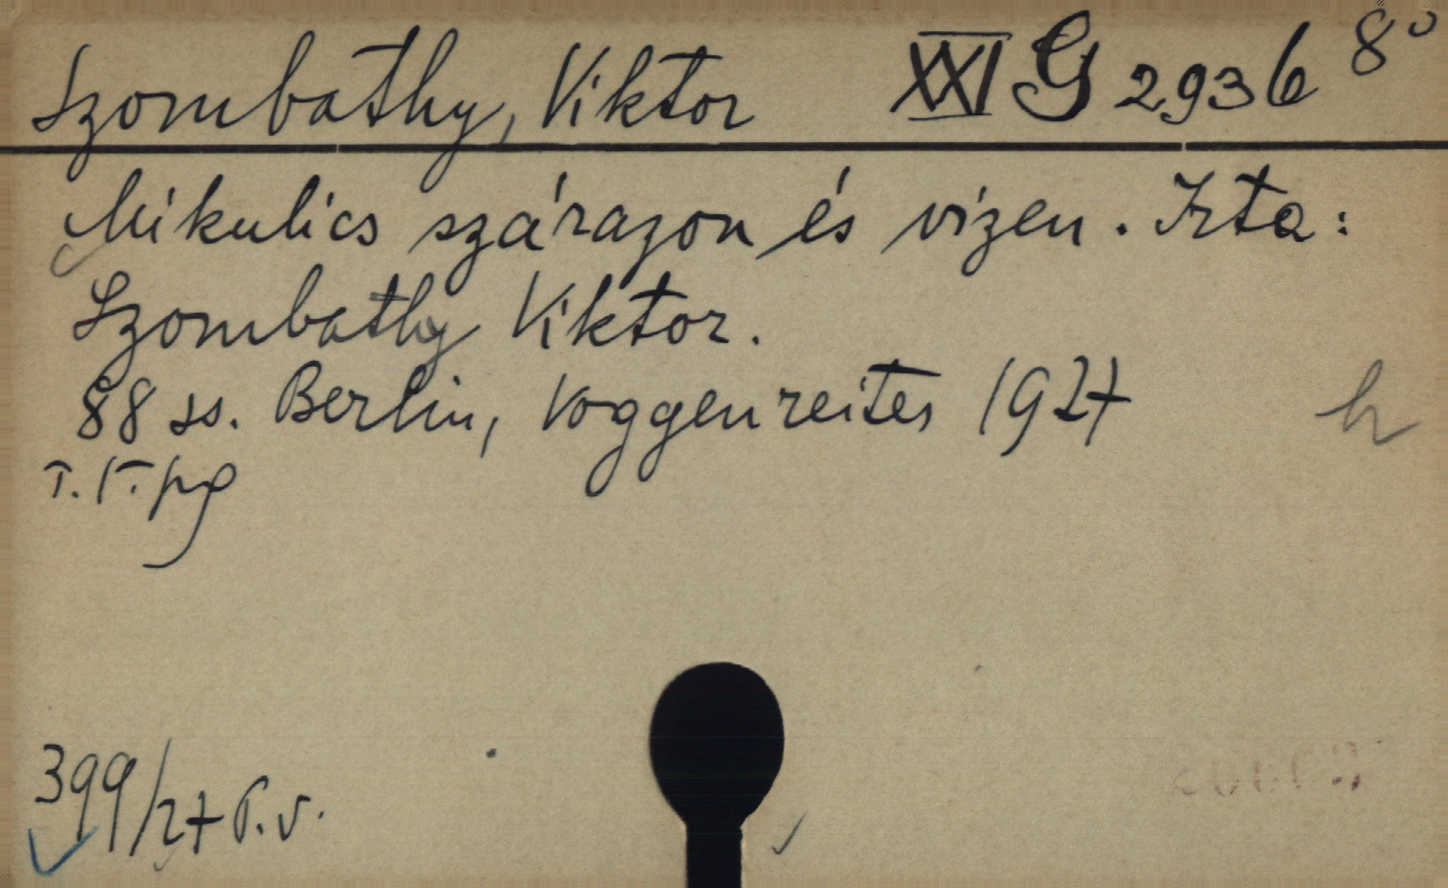 Szombathy, Viktor XXI G 2936 8°
Mikulics szárazon és vizen. Irta:
Szombathy Viktor.
88 ss. Berlin, Voggenreiter 1927
h
399/27 P.v.